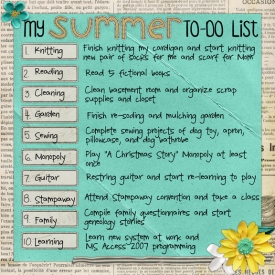 my SUMMER TO-DO LIST
1. Knitting
Finish knitting my cardigan and start knitting
new pair of socks for me and scarf for Mom
2. Reading
Read 5 fictional books
3. Cleaning
Clean basement room and organize scrap
supplies and closet
4. Garden
Finish re-sodding and mulching garden
5. Sewing
Complete sewing projects of dog toy, apron,
pillowcase, and dog bathrobe
6. Monopoly
Play "A Christmas Story" Monopoly at least
once
7. Guitar
Restring guitar and start re-learning to play
8. Stampaway
Attend Stampaway convention and take a class
9. Family
Compile family questionnaires and start
genealogy stories
10. Learning
Learn new system at work and
MS Access 2007 programming